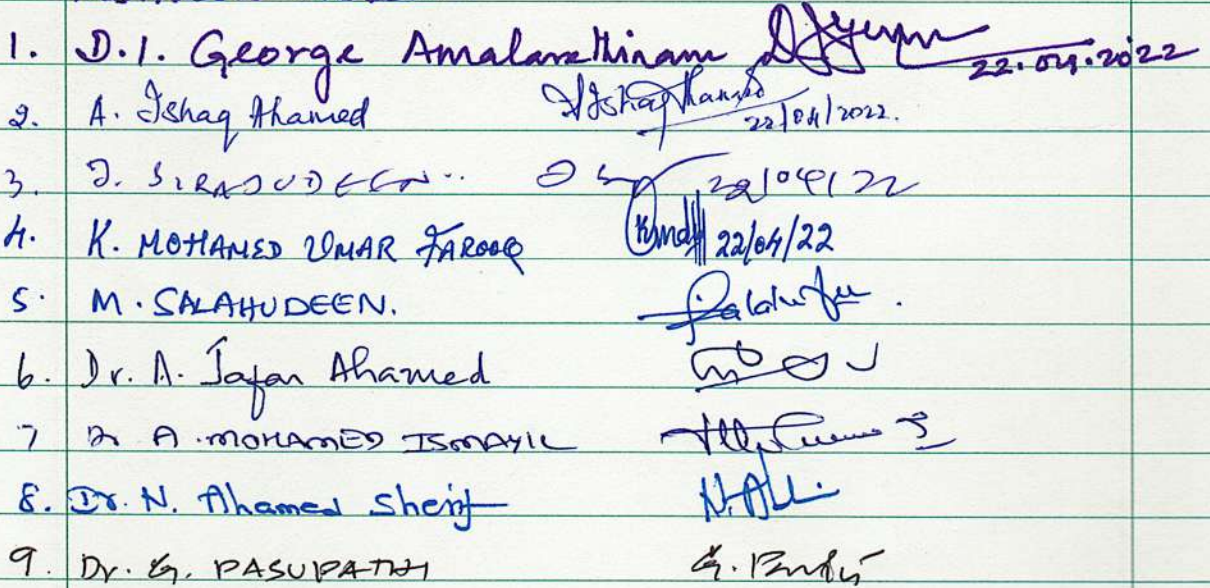 1. D.I. George Amalarethinam 22.04.2022
2. A. Ishaq Ahamed A Ishaq Ahamed 22/04/2022.
3. J. SIRAJUDEEN 22/04/22
4. K. MOHAMED UMAR FAROOQ 22/04/22
5. M. SALAHUDEEN.
6. Dr. A. Jafar Ahamed
7 Dr A. MOHAMED ISMAYIL
8. Dr. N. Ahamed Sherif
9. Dr. G. PASUPATHI